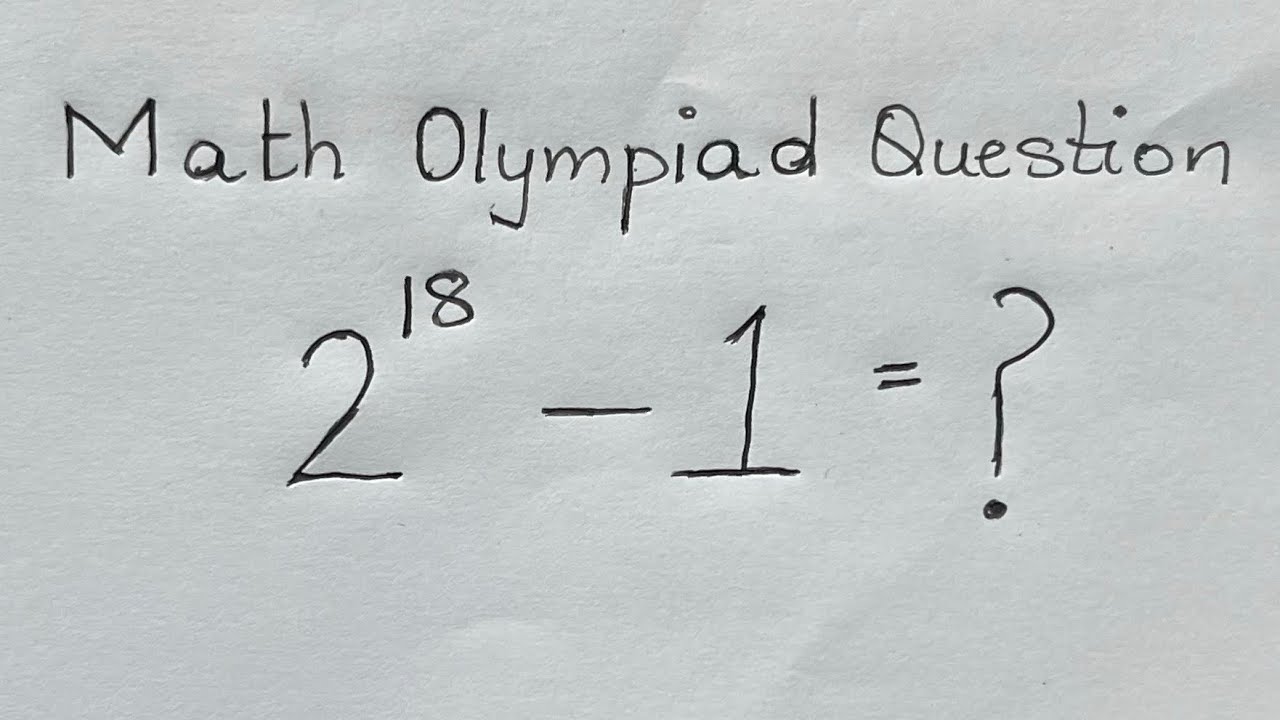 Math Olympiad Question
2¹⁸ − 1 = ?